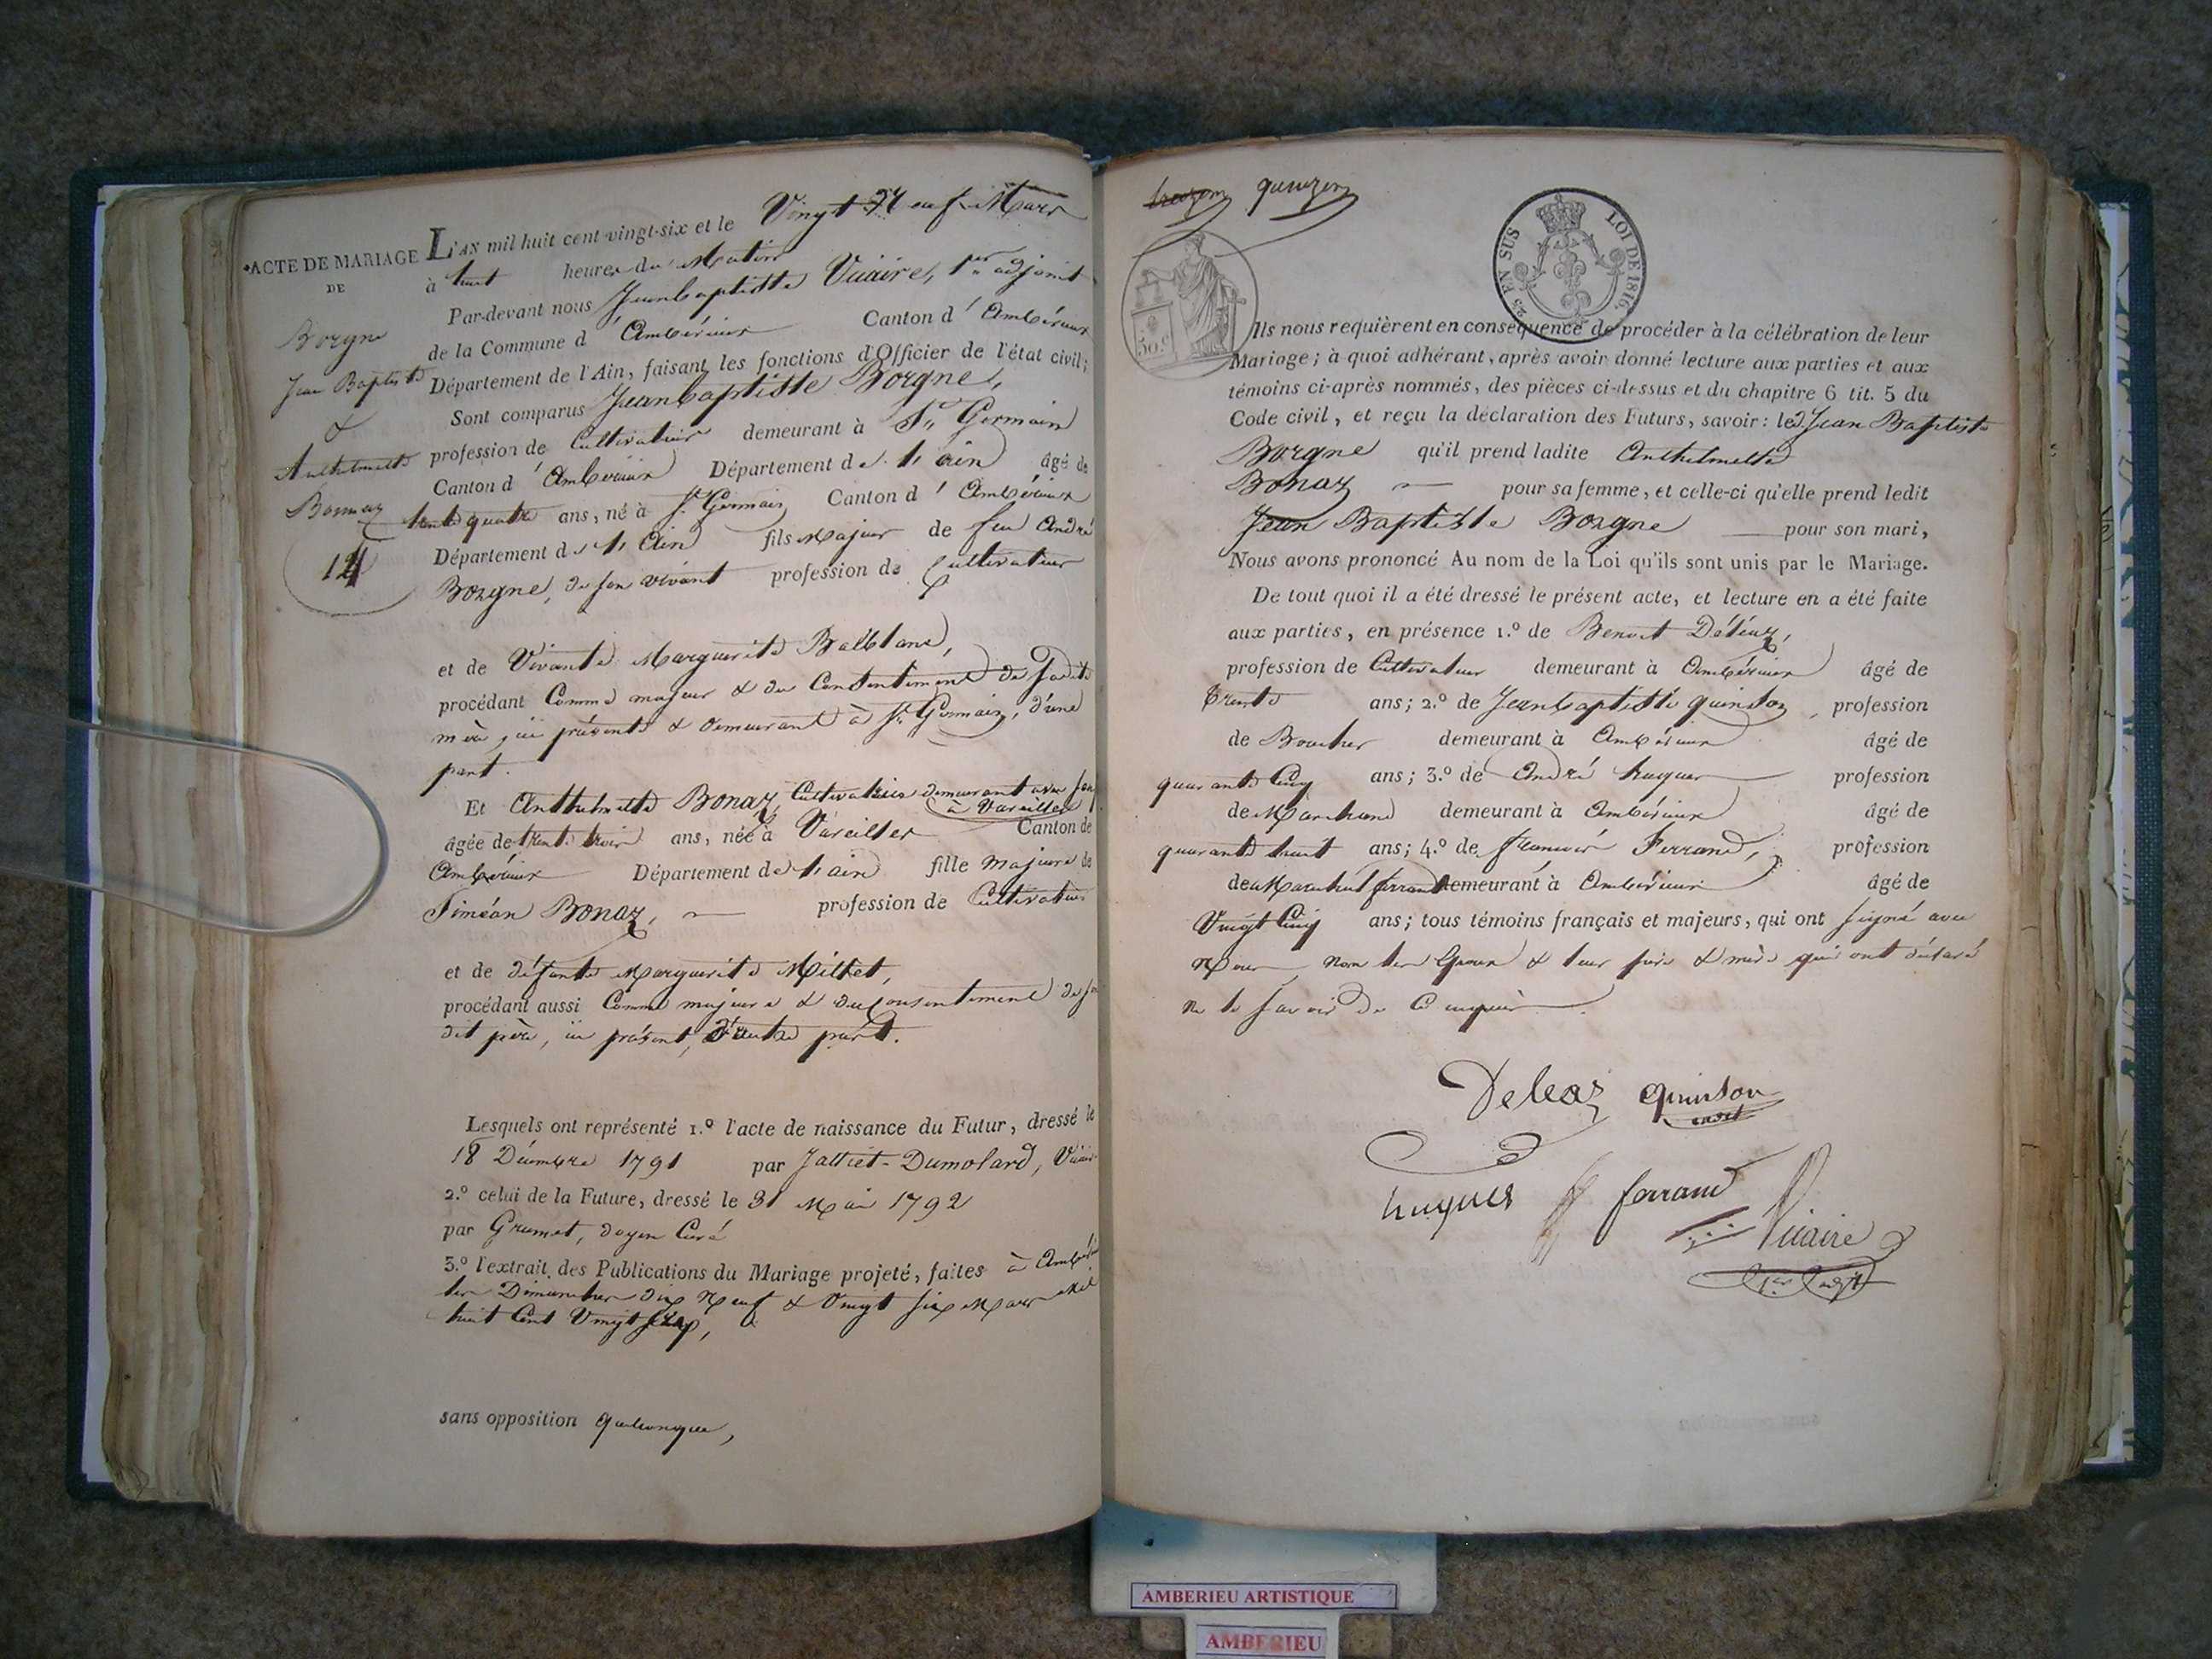 ACTE DE MARIAGE
DE
Borgne
Jean Baptiste
&
Anthelmette
Bonnaz
12
L'AN mil huit cent vingt-six et le Vingt Neuf Mars
à huit heures du Matin
Par-devant nous Jeanbaptiste Vicaire, 1er adjoint
de la Commune d'Ambérieux Canton d'Ambérieux
Département de l'Ain, faisant les fonctions d'Officier de l'état civil;
Sont comparus Jeanbaptiste Borgne,
profession de Cultivateur demeurant à St Germain
Canton d'Ambérieux Département de l'ain âgé de
trente quatre ans, né à St Germain Canton d'Ambérieux
Département de l'Ain fils Majeur de feu André
Borgne, de son vivant profession de Cultivateur
et de Vivante Marguerite Balblanc,
procédant Comme majeur & du Consentement de sadite
mère, ici présente & demeurant à St Germain, d'une
part.
Et Anthelmette Bonaz, Cultivatrice demeurant avec son
à Vareilles
âgée de trente trois ans, née à Vareilles Canton de
Ambérieux Département de l'ain fille majeure de
Siméan Bonaz, profession de Cultivateur
et de défunte Marguerite Millet,
procédant aussi Comme majeure & du Consentement de son
dit père, ici présent, d'autre part.
Lesquels ont représenté 1.° l'acte de naissance du Futur, dressé le
18 Décembre 1791 par Jalliet-Dumolard, Vicaire
2.° celui de la Future, dressé le 31 Mai 1792
par Grumet, doyen Curé
3.° l'extrait des Publications du Mariage projeté, faites à Ambérieux
les Dimanches dix Neuf & Vingt six Mars Mil
huit Cent Vingt six,
sans opposition quelconque,
quinzon
2 EN SUS
LOI DE 1816
50 c
Ils nous requièrent en conséquence de procéder à la célébration de leur
Mariage; à quoi adhérant, après avoir donné lecture aux parties et aux
témoins ci-après nommés, des pièces ci-dessus et du chapitre 6 tit. 5 du
Code civil, et reçu la déclaration des Futurs, savoir: led. Jean Baptiste
Borgne qu'il prend ladite Anthelmette
Bonaz pour sa femme, et celle-ci qu'elle prend ledit
Jean Baptiste Borgne pour son mari,
Nous avons prononcé Au nom de la Loi qu'ils sont unis par le Mariage.
De tout quoi il a été dressé le présent acte, et lecture en a été faite
aux parties, en présence 1.° de Benoit Déléaz,
profession de Cultivateur demeurant à Ambérieux âgé de
trente ans; 2.° de Jeanbaptiste quinson, profession
de Boucher demeurant à Ambérieux âgé de
quarante Cinq ans; 3.° de André hugues profession
de Marchand demeurant à Ambérieux âgé de
quarante huit ans; 4.° de francois Ferrand, profession
de Maréchal ferrant demeurant à Ambérieux âgé de
Vingt Cinq ans; tous témoins français et majeurs, qui ont signé avec
Nous non les Epoux & leur père & mère qui ont déclaré
ne le savoir de ce enquis.
Deleaz quinson
cadet
hugues ferrand
Vicaire
1er adjt
AMBERIEU ARTISTIQUE
AMBERIEU